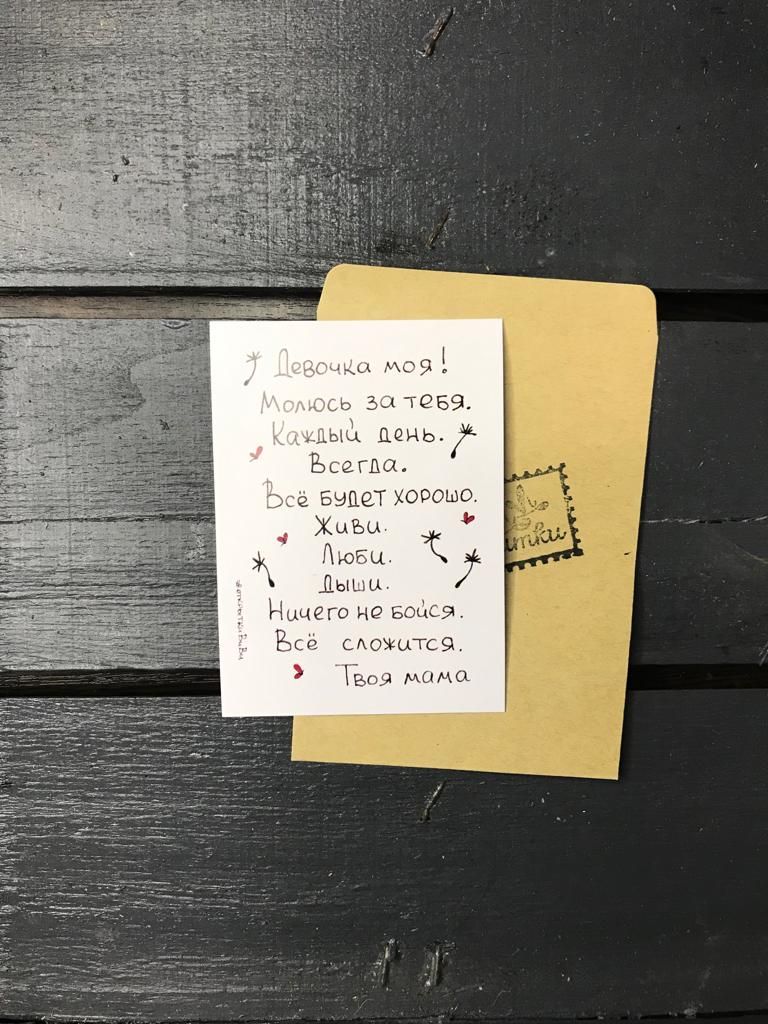 Девочка моя!
Молюсь за тебя.
Каждый день.
Всегда.
Всё будет хорошо.
Живи.
Люби.
Дыши.
Ничего не бойся.
Всё сложится.
Твоя мама